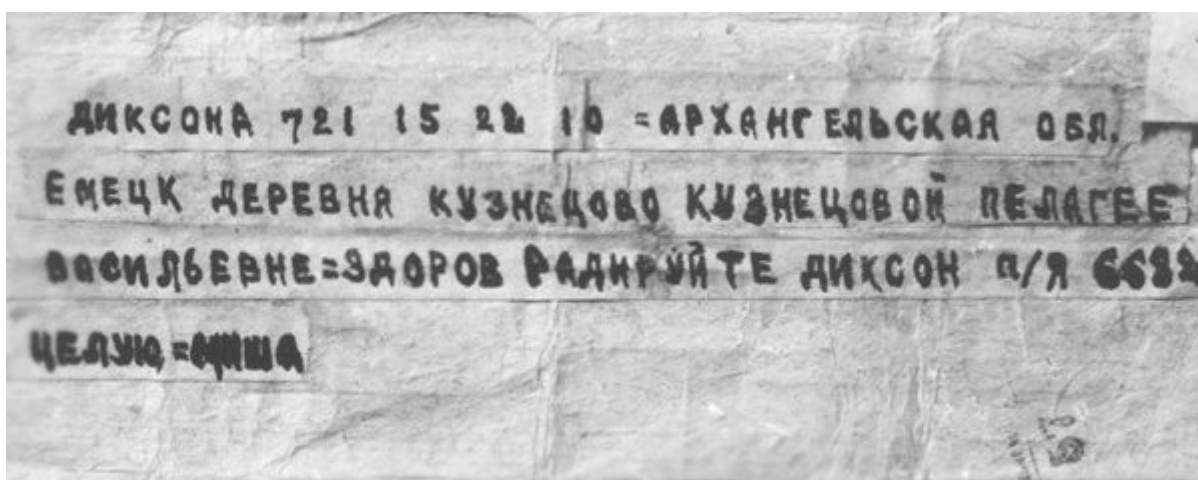 ДИКСОНА 721 15 22 10 = АРХАНГЕЛЬСКАЯ ОБЛ.
ЕМЕЦК ДЕРЕВНЯ КУЗНЕЦОВО КУЗНЕЦОВОЙ ПЕЛАГЕЕ
ВАСИЛЬЕВНЕ=ЗДОРОВ РАДИРУЙТЕ ДИКСОН П/Я
ЦЕЛУЮ=МИША